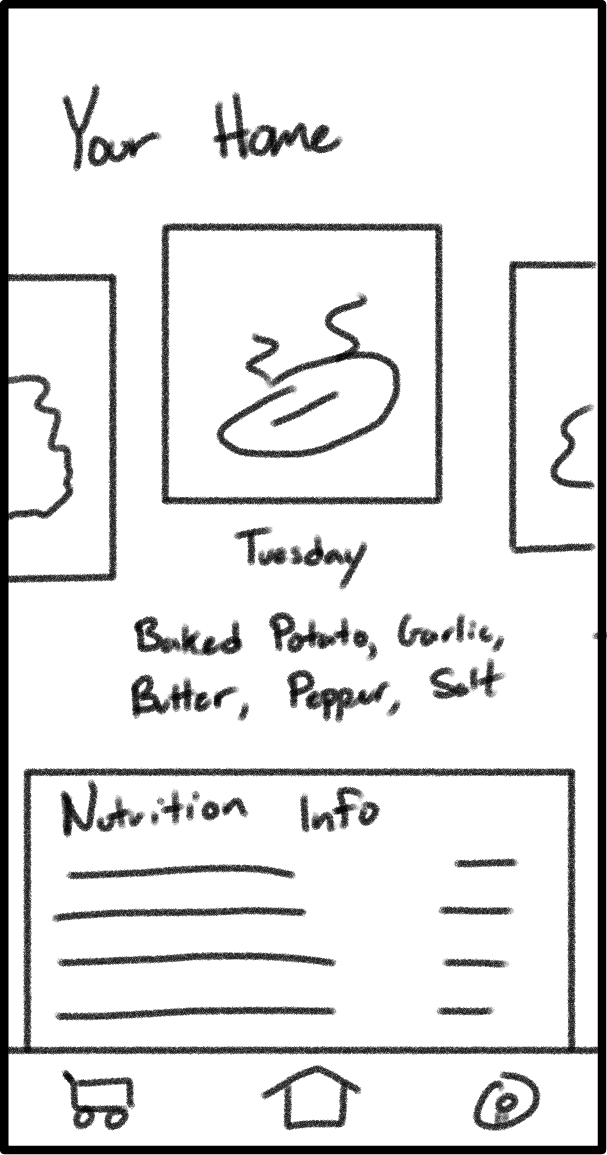 Your Home
Tuesday
Baked Potato, Garlic,
Butter, Pepper, Salt
Nutrition Info